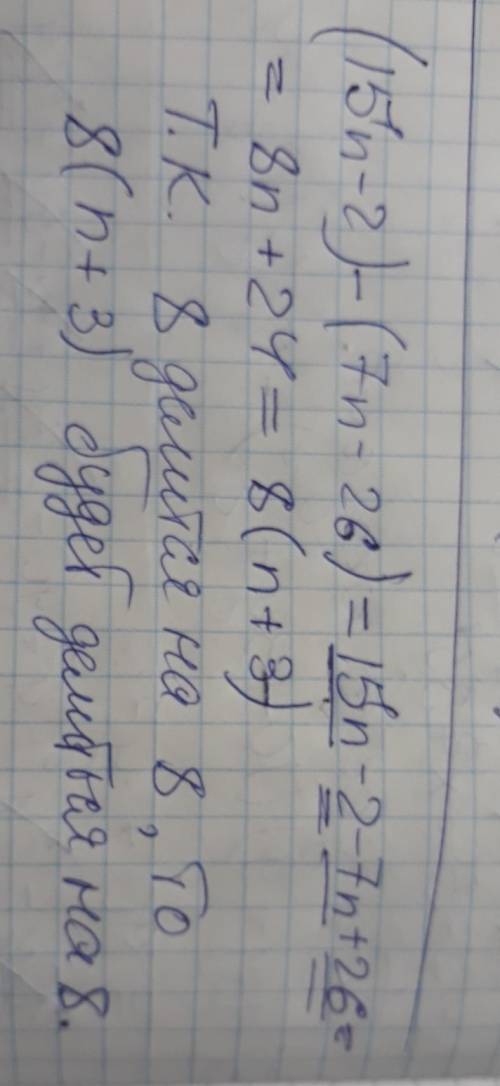 (15n-2)-(7n-26)=15n-2-7n+26=
= 8n+24= 8(n+3)
Т.К. 8 делится на 8, то
8(n+3) будет делиться на 8.